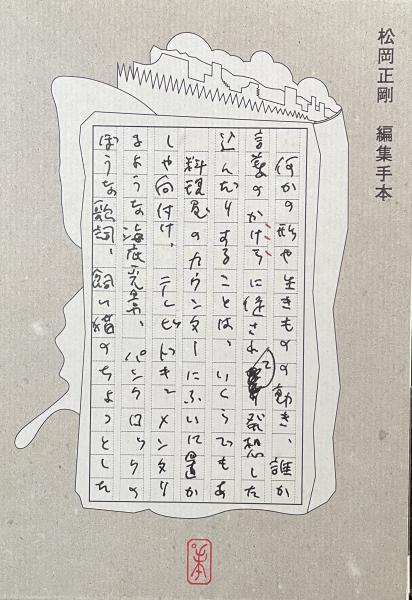 松岡正剛 編集手本
何かの形や生きものの動き、誰か
言葉のかけらに促されて発想した
込んだりすることは、いくらでもあ
料理屋のカウンターにふいに置か
しや向付け、テレビドキュメンタリ
ような海底光景、パンクロックの
ような歌詞、飼い猫のちょっとした